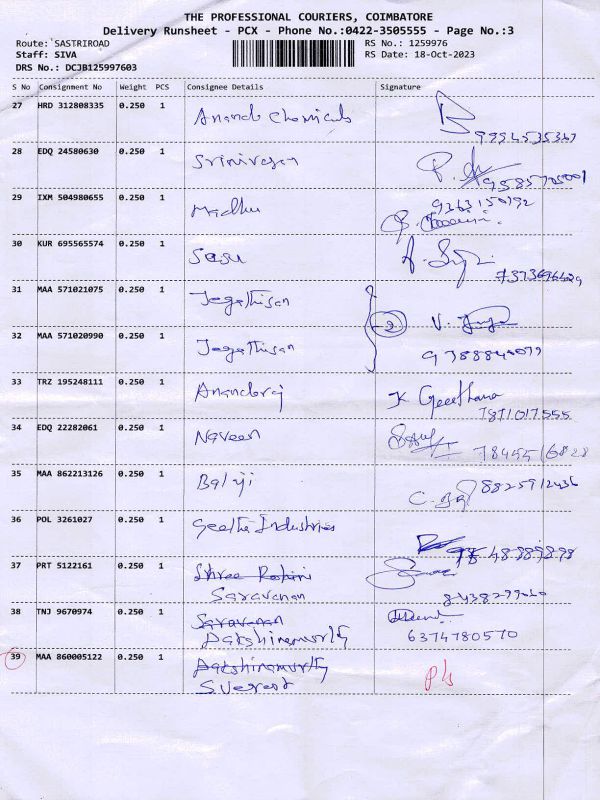 THE PROFESSIONAL COURIERS, COIMBATORE
Delivery Runsheet - PCX - Phone No.:0422-3505555 - Page No.:3
Route: SASTRIROAD RS No.: 1259976
Staff: SIVA RS Date: 18-Oct-2023
DRS No.: DCJB125997603
S No Consignment No Weight PCS Consignee Details Signature
27 HRD 312808335 0.250 1 Anand Chemicals
28 EDQ 24580630 0.250 1 Srinivasan
29 IXM 504980655 0.250 1 Madhu
9363150192
30 KUR 695565574 0.250 1 Sasu
31 MAA 571021075 0.250 1 Jegathisan
2
32 MAA 571020990 0.250 1 Jegathisan
33 TRZ 195248111 0.250 1 Anandaraj K Geethana
7871017555
34 EDQ 22282061 0.250 1 Naveen
35 MAA 862213126 0.250 1 Balaji
8825912436
36 POL 3261027 0.250 1 Geetha Industries
37 PRT 5122161 0.250 1 Shree Roshini
Saravanan
38 TNJ 9670974 0.250 1 Saravanan
Dakshinamurthy 6374780570
39 MAA 860005122 0.250 1 Dakshinamurthy